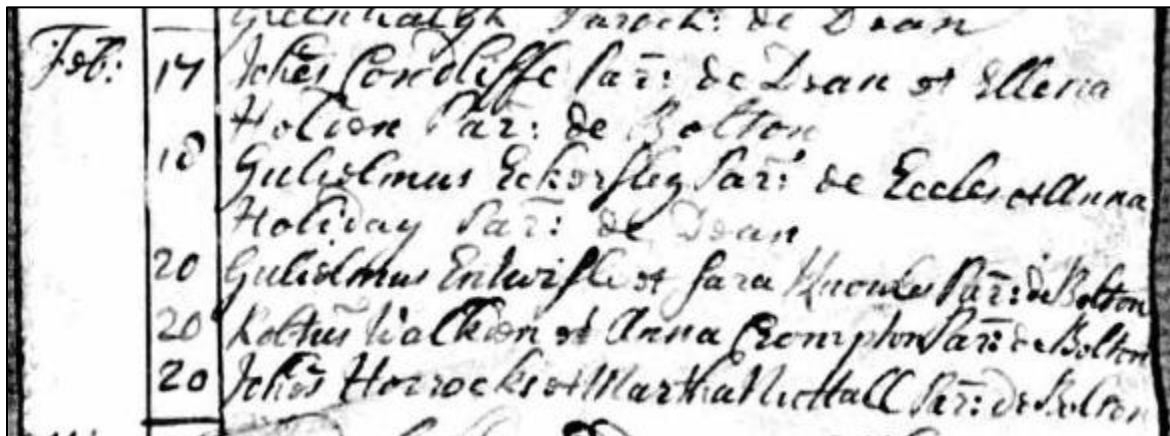 Greenhalgh Paroch: de Dean
Feb: 17 Johēs Condliffe Par̄: de Dean et Ellena
Holden Par: de Bolton
18 Gulielmus Eckersley Par̄: de Eccles et Anna
Holiday Par̄: de Dean
20 Gulielmus Entwisle et Sara Knowles Par̄: de Bolton
20 Robtus et Anna Crompton Par̄: de Bolton
20 Johēs Horrocks et Martha Nuttall Par̄: de Bolton